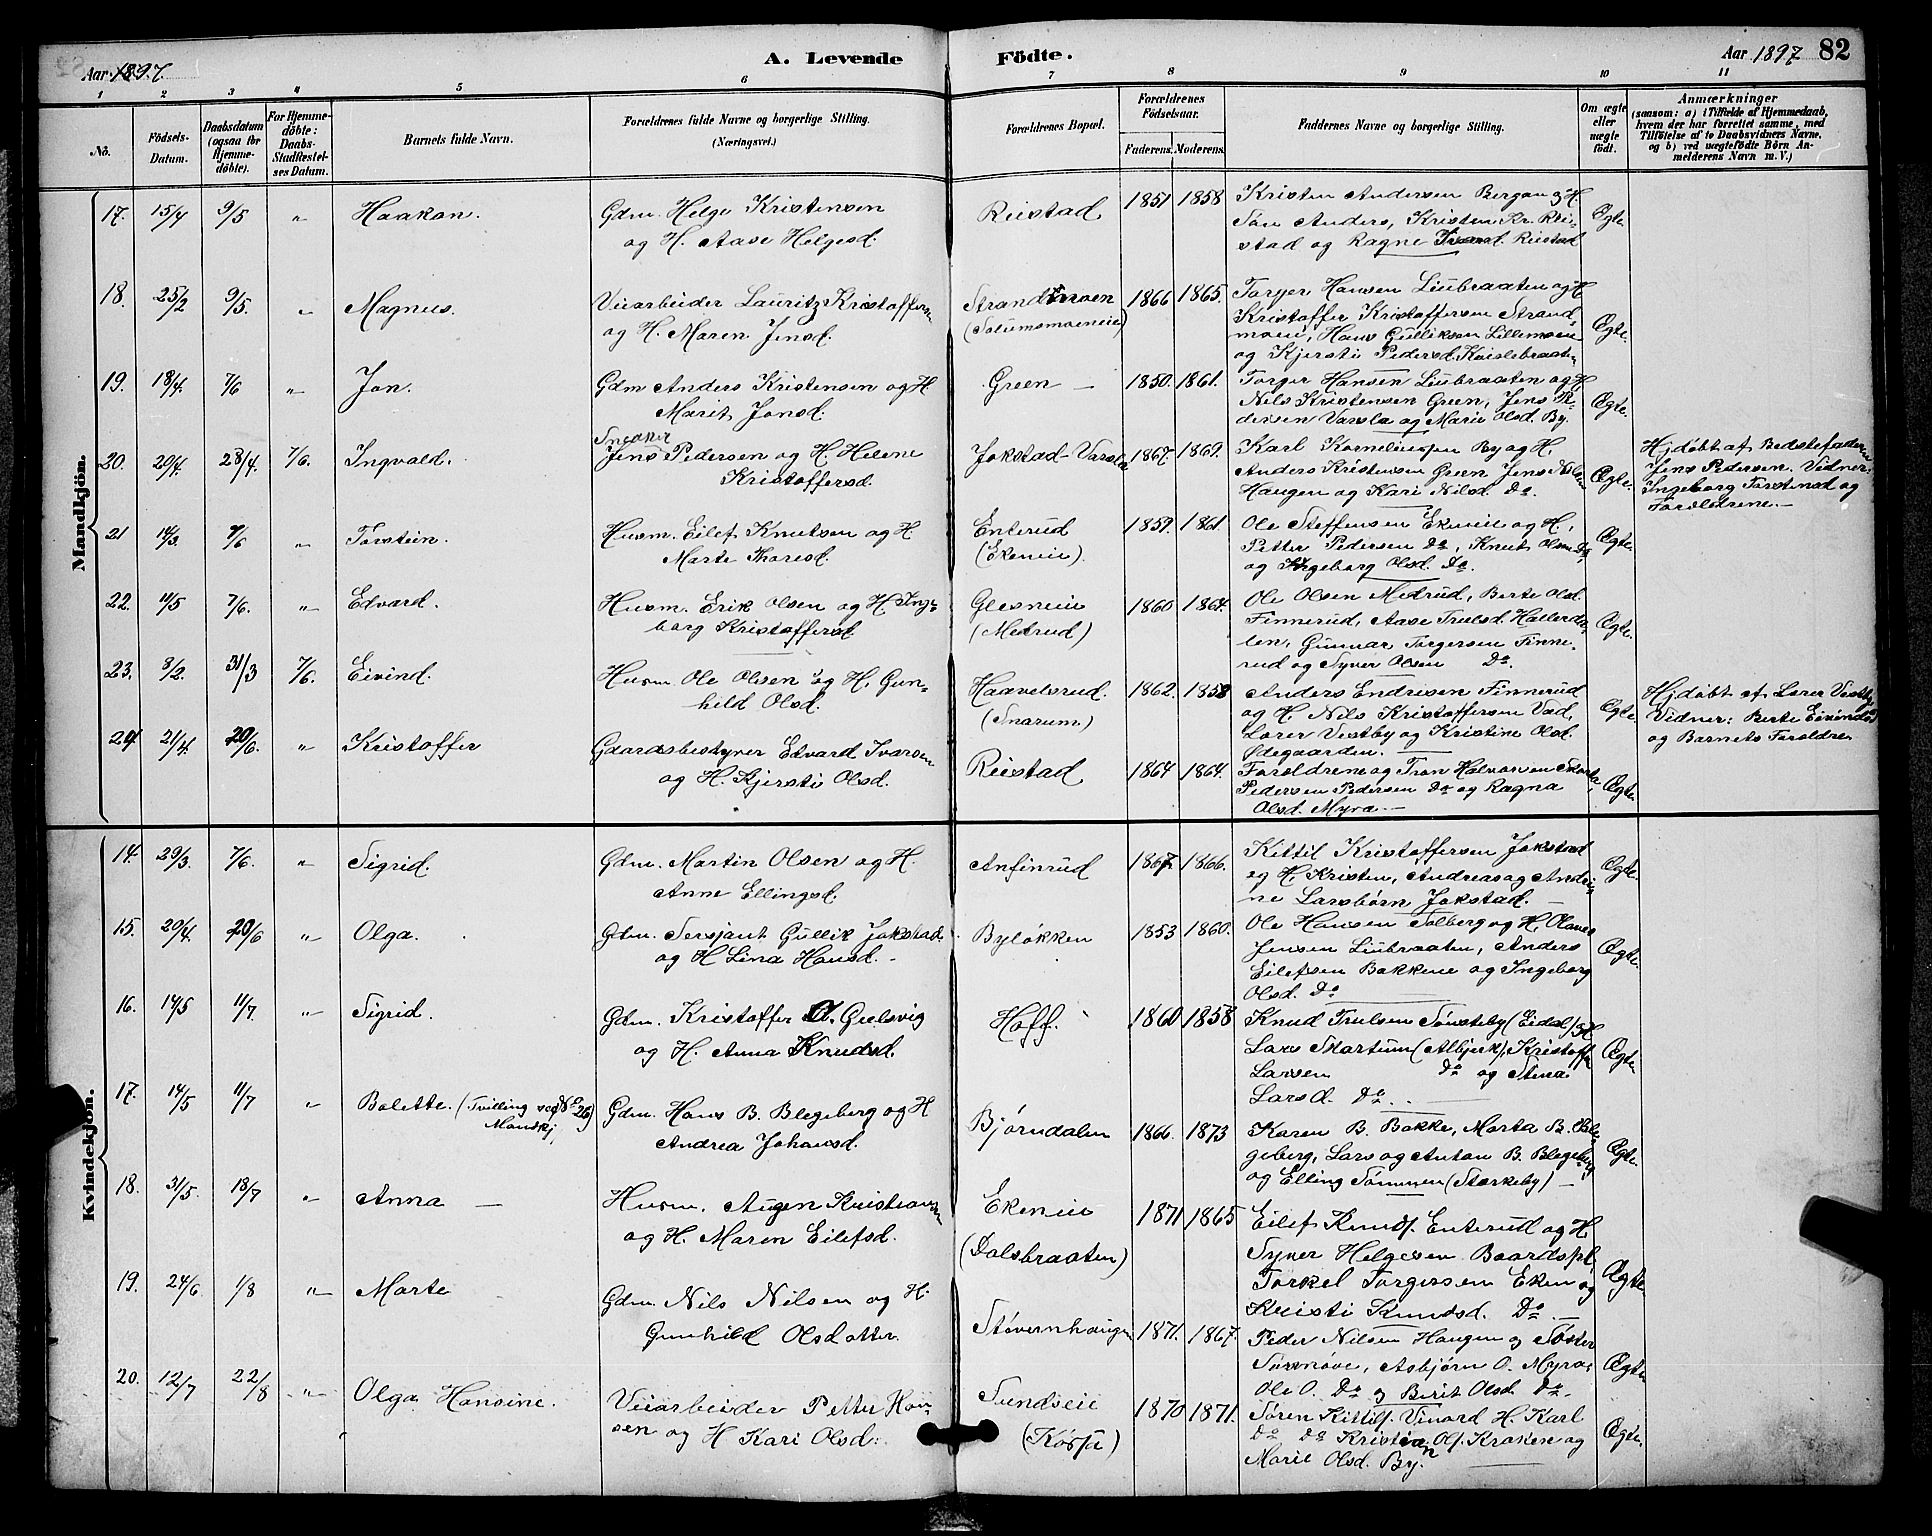 Aar 1897. A. Levende Födte. Aar 1897 82
1 2 3 4 5 6 7 8 9 10 11
No. Födsels-Datum. Daabsdatum (ogsaa for Hjemmedöbte). For Hjemmedöbte: Daabs-Stadfæstelses Datum. Barnets fulde Navn. Forældrenes fulde Navne og borgerlige Stilling. (Næringsvei.) Forældrenes Bopæl. Forældrenes Födselsaar. Faderens. Moderens. Faddernes Navne og borgerlige Stilling. Om ægte eller uægte födt. Anmærkninger (saasom: a) i Tilfælde af Hjemmedaab, hvem der har forrettet samme, med Tilföielse af to Daabsvidners Navne, og b) ved uægtefödte Börn Anmelderens Navn m. V.)
Mandkjön.
17. 15/4 9/5 " Haakon. Gdm. Helge Kristensen Reistad 1851 1858 Kristen Andersen Bergan og H.
og H. Aase Helgesd. Søn Anders, Kristen Kr. Rei- Ægte.
stad og Ragne Iversd. Reistad
18. 25/2 9/5. " Magnus. Veiarbeider Lauritz Kristoffersen Strandmoen 1866 1865. Torger Hansen Liubraaten og H
og H. Maren Jensd. (Solumsmoeneie) Kristoffer Kristoffersen Strand-
moen, Hans Gulliksen Lillemoen Ægte.
og Kjersti Pedersd. Kaislebraaten
19. 18/4. 7/6 " Jon. Gdm Anders Kristensen og H. Green — 1850. 1861. Torger Hansen Liubraaten og H,
Marit Jonsd. Nils Kristensen Green, Jens Pe- Ægte.
dersen Varsla og Marie Olsd. By.
20. 20/4. 28/4. 7/6. Ingvald. Snedker Jens Pedersen og H. Helene Jokstad-Varsla 1867. 1869. Karl Korneliussen By og H. Hjdøbt af Bedstefaderen
Kristoffersd. Anders Kristensen Green Jens Nilsen Ægte. Jens Pedersen. Vidner:
Haugen og Kari Nilsd. Do. Ingeborg Torstensd og
Forældrene. —
21 14/3. 7/6 " Torstein. Husm. Eilef Knutsen og H. Enterud 1859. 1861. Ole Steffensen Ekeneie og H,
Marte Thoresd. (Ekeneie). Petter Pedersen Do, Knut Olsen Do, Ægte.
og Ingeborg Olsd. Do.
22. 11/5 7/6. " Edvard. Husm. Erik Olsen og H. Inge- Glesneie 1860 1864. Ole Olsen Medrud, Berte Olsd.
borg Kristoffersd (Medrud) Finnerud, Aase Trulsd. Hallerda-
len, Gunnar Torgersen Finne- Ægte.
rud og Syver Olsen Do.
23. 8/2. 31/3 7/6. Eivind. Husm Ole Olsen og H. Gun- Haavelsrud. 1862. 1858 Anders Endresen Finnerud Hjdøbt af Lærer Vestby
hild Olsd. (Snarum) og H. Nils Kristoffersen Vad, Ægte Vidner: Berte Eivindsd
Lærer Vestby og Kristine Olsd. og Barnets Forældre
Ødegaarden. —
24 21/4. 20/6. " Kristoffer Gaardsbestyrer Edvard Iversen Reistad 1864 1864. Forældrene og Tron Halvorsen Skarta,
og H. Kjersti Olsd. Pedersen Pedersen Do og Ragna Ægte
Olsd. Myra —
Kvindekjön.
14. 29/3. 7/6. " Sigrid. Gdm. Martin Olsen og H. Anfinrud 1867 1866. Kittil Kristoffersen Jokstad
Anne Ellingsd. og H. Kristen, Andreas og Andri- Ægte.
ne Larsbørn Jokstad. —
15. 20/4. 20/6 " Olga. Gdm. Sersjant Gullik Jokstad Byløkken 1853 1860. Ole Hansen Solberg og H, Olaves
og H Lina Hansd. Jensen Liubraaten, Anders
Eilefsen Bakkene og Ingeborg Ægte.
Olsd. Do
16. 14/5 11/7 " Sigrid. Gdm. Kristoffer A. Gulsvig Hoff. 1860 1858 Knud Trulsen Sønsteby (Eidal) og H
og H. Anna Knudsd. Lars Skartum (Albjerk), Kristoffer Ægte
Larsen Do og Stina
Larsd. Do. —
17. 14/5 11/7 " Bolette. (Tvilling ved No 26) Manskj. Gdm. Hans B. Blegeberg og H Bjørndalen 1866. 1873 Karen B. Bakke, Marta B. Ble-
Andrea Johansd. geberg, Lars og Anton B. Blegeberg Ægte.
og Elling Sømmen (Størkeby) —
18. 31/5. 18/7 " Anna — Husm. Augen Kristiansen Ekeneie 1871 1865 Eilef Knuds. Enterud og H
og H. Maren Eilefsd. (Dalsbraaten) Syver Helgesen Baardspl, Ægte
Torkel Torgersen Eken og
Kristi Knudsd. Do —
19. 24/6 1/8 " Marte Gdm. Nils Nilsen og H. Støvernhaugen 1871. 1867. Peder Nilsen Haugen og Søster
Gunhild Olsdatter. Synnøve, Asbjørn O. Myra, Ægte
Ole O. Do og Berit Olsd Do.
20. 12/7 22/8 " Olga Hansine. Veiarbeider Petter Han- Sundseie 1870 1871. Søren Kittils. Vinord H. Karl
sen og H Kari Olsd. (Korsja) Do Do Kristian Ols. Kraken og Ægte.
Marie Olsd. By.